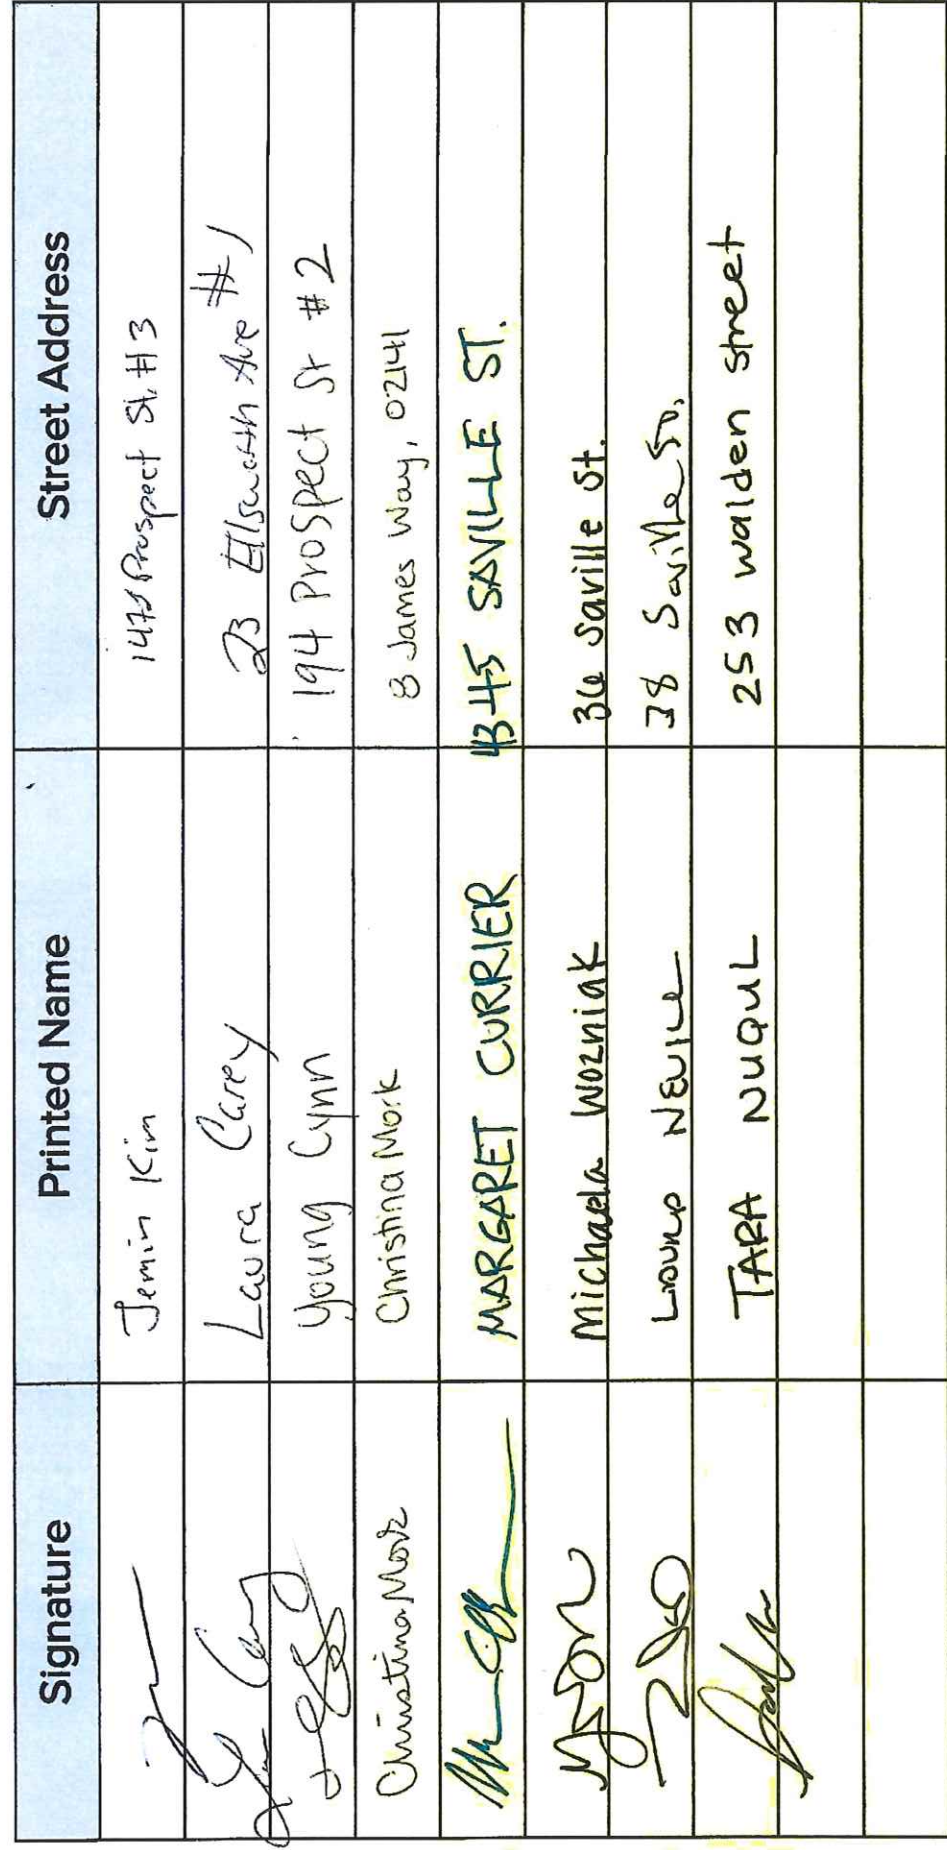 Signature Printed Name Street Address
Jemin Kim Prospect St. #3
Laura Carey 23 Ellsworth Ave #1
Young Cynn 194 Prospect St #2
Christina Mork Christina Mork 8 James Way, 02141
MARGARET CURRIER SAVILLE ST.
Michaela Wozniak 36 Saville St.
NEVILLE 38 Saville St.
TARA NUQUL 253 walden street